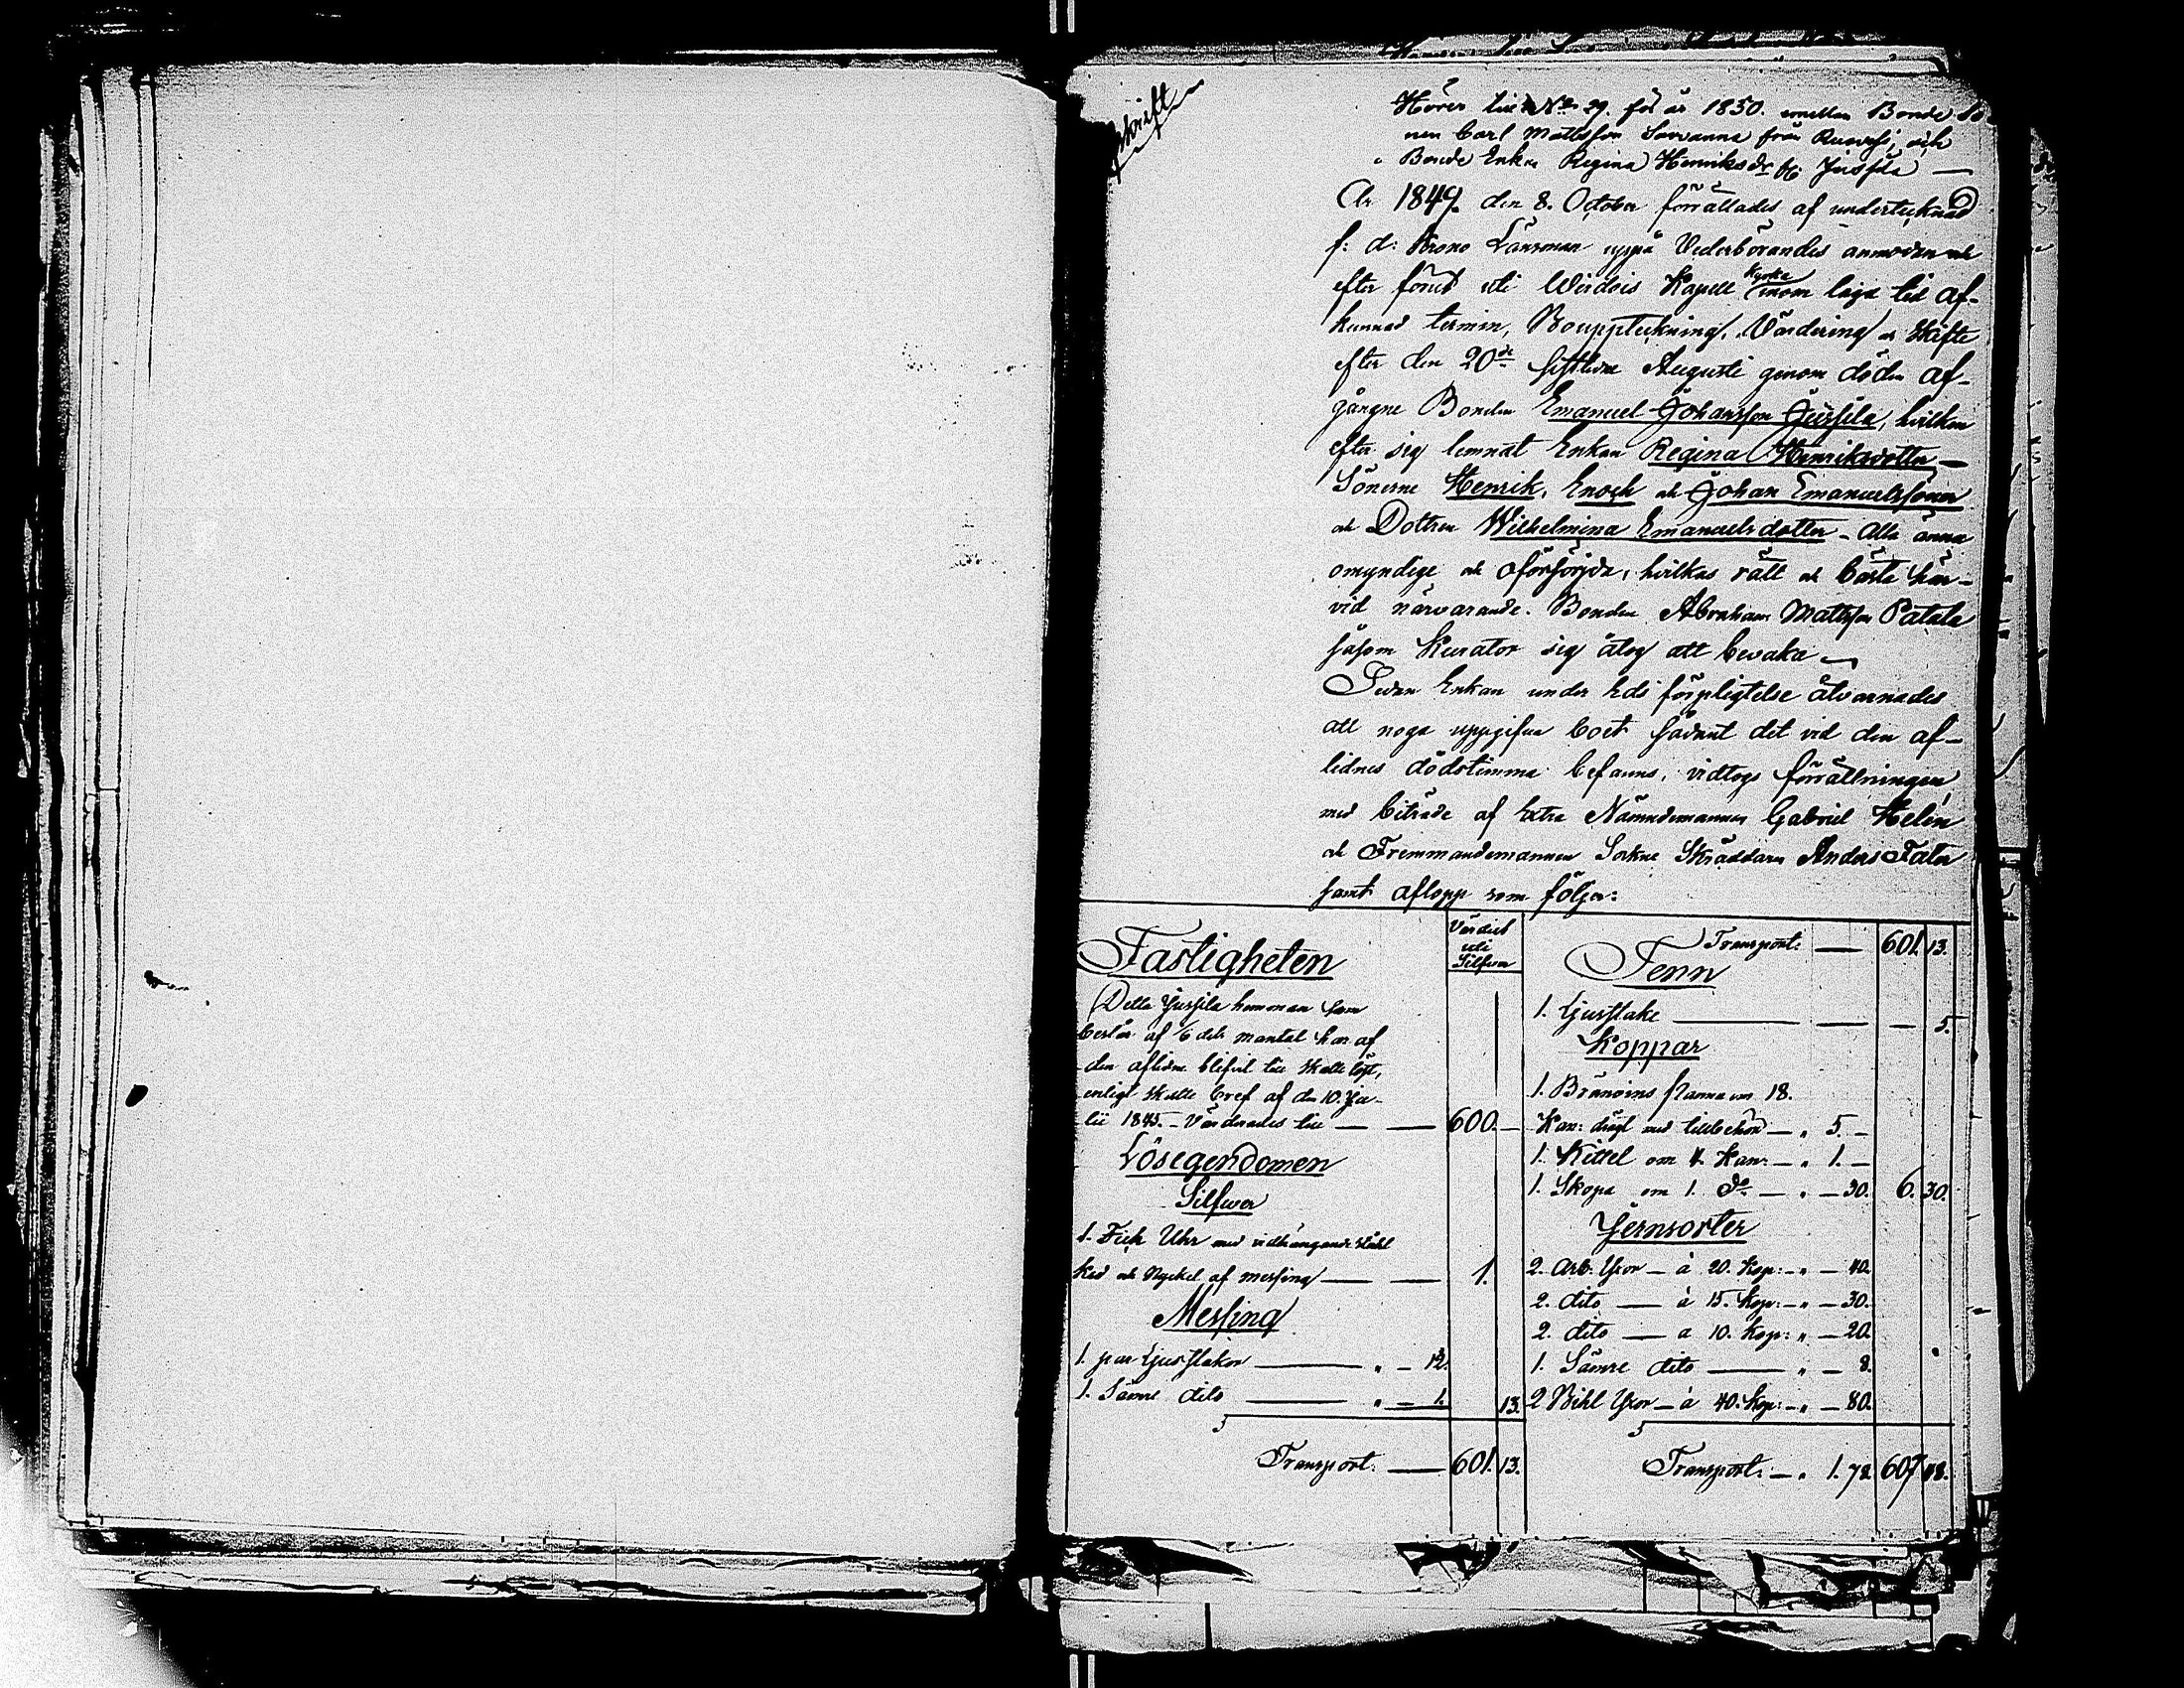 skrift
Hörer till No 29. för år 1850. emellan Bonde So
nen Carl Mattsson Savanna från Ruovesi, och
Bonde Enkan Regina Henriksdr fr. Jussila —
År 1849. den 8. October förrättades af undertecknad
f: d: Krono Länsman uppå Vederbörandes anmodan och
efter förut uti Wirdois Kapell Kyrka inom laga tid af-
kunnad termin, Bouppteckning, Värdering och Skifte
efter den 20de sistledne Augusti genom döden af-
gångne Bonden Emanuel Johansson Jussila, hvilken
efter sig lemnat Enkan Regina Henriksdotter —
Sönerne Henrik, Enoch och Johan Emanuelssöner
och Dottren Wilhelmina Emanuelsdotter - Alla ännu
omyndige och oförsörjda, hvilkas rätt och bästa här-
vid närvarande Bonden Abraham Mattsson Patala
såsom Kurator sig åtog att bevaka —
Sedan Enkan under Eds förpligtelse åtvarnades
att noga uppgifva boet sådant det vid den af-
lidnes dödstimma befanns, vidtogs förrättningen
med biträde af Extra Nämndemannen Gabriel Helén
och Fremmandemannen Sockne Skräddaren Anders Fater
samt aflopp som följer:
Fastigheten
Värdert
uti
Silfver
Detta Jussila hemman som
består af 1/6 dels mantal har af
den aflidne blifvit till Skatte löst,
enligt Skatte bref af den 10. Ju-
lii 1845. - Värderades till — — 600. —
Lösegendomen
Silfwer
1. Fick Uhr med vidhängande stål
ked och Nyckel af messing — — 1.
Messing
1. par Ljusstakar — " — 12.
1. Sämre dito — " — 1. 13.
Transport: — 601. 13.
Transport: — 601. 13.
Tenn
1. Ljusstake — — — 5.
Koppar
1. Bränvins Panna om 18.
Kan: drägt med tillbehör — " 5. —
1. Kittel om 4. Kan: — " 1. —
1. Skopa om 1. Do — " — 30. 6. 30.
Jernsorter
2. Arb. Yxor — à 20. Kop: — " — 40.
2. dito — à 15. Kop: — " — 30.
2. dito — à 10. Kop: " — 20.
1. Sämre dito — " — 8.
2 Bihl Yxor — à 40. Kop: — " — 80.
Transport: — " 1. 78. 607. 48.